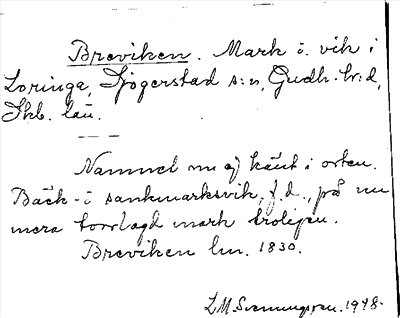 Breviken. Mark o. vik i
Loringa, Sjogerstad s:n, Gudh. hr:d,
Skb. län.
Namnet nu ej känt i orten.
Bäck- o sankmarksvik, f.d., på nu
mera torrlagd mark troligen.
Breviken lm. 1830.
L M. Svenungsson. 1948.